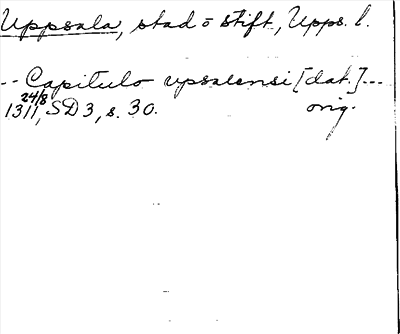 Uppsala, stad o stift, Upps. l.
-- Capitulo vpsalensi [dat.] ---
24/8
1311, SD 3, s. 30. orig.